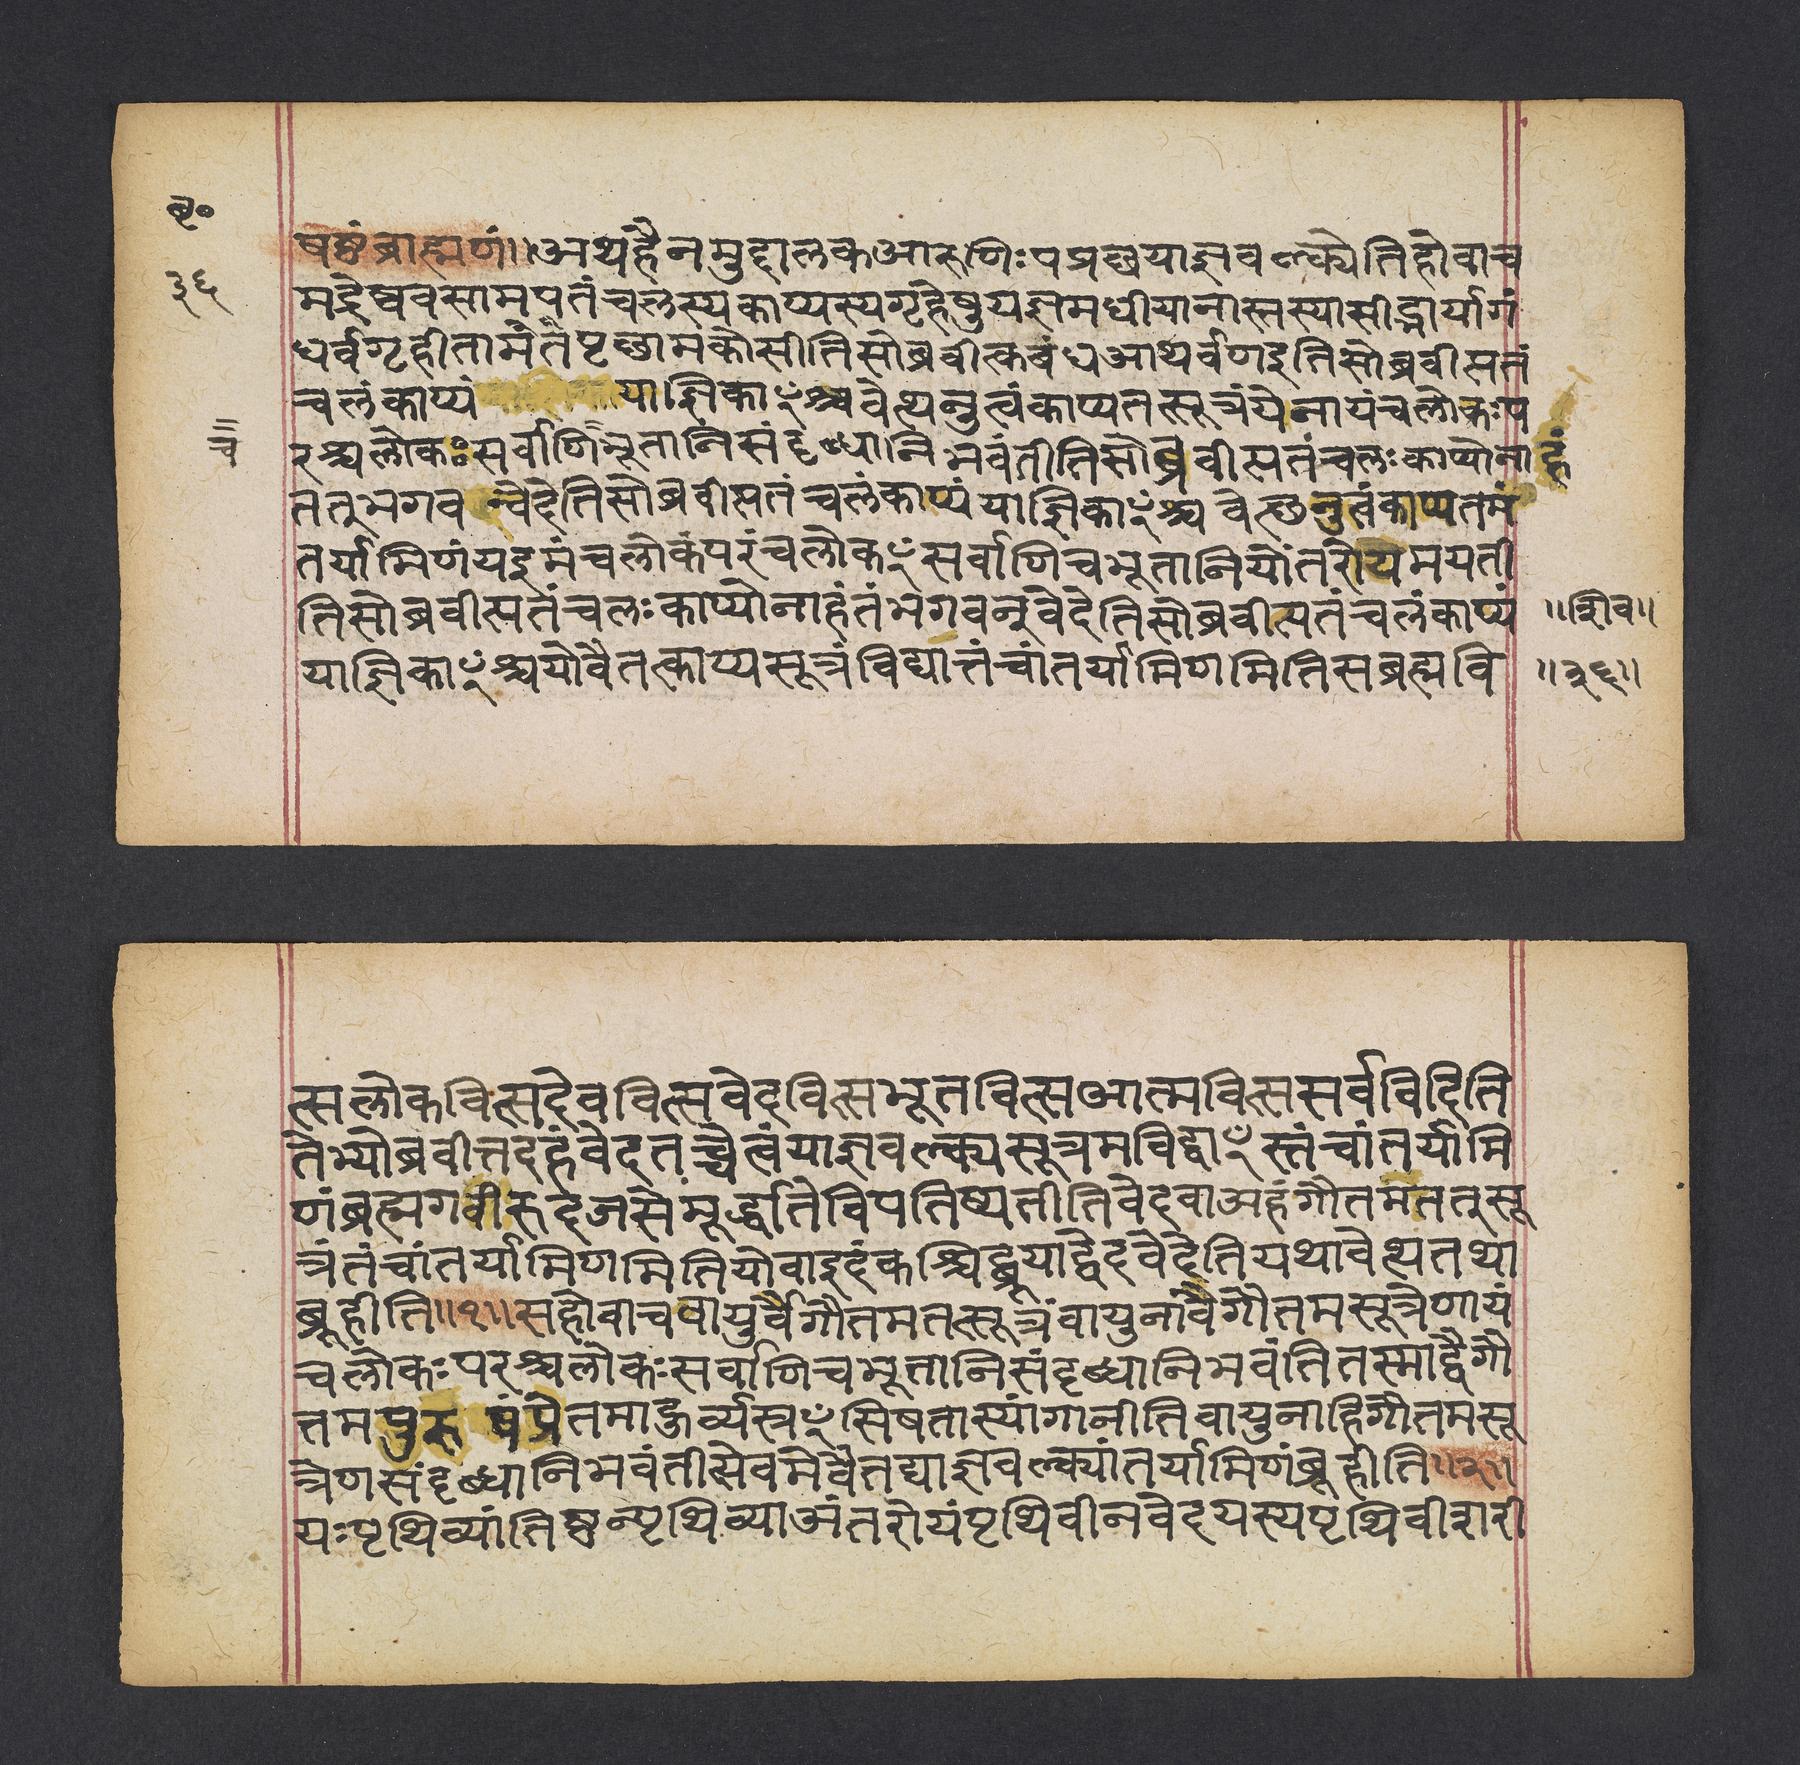 बृ०
३६
षष्ठंब्राह्मणं॥अथहैनमुद्दालकआरुणिःपप्रछयाज्ञवल्क्येतिहोवाच
मद्रेष्ववसामपतंचलस्यकाप्यस्यगृहेषुयज्ञमधीयानास्तस्यासीद्भार्यागं
धर्वगृहीतामंतैपृछामकोसीतिसोब्रवीत्कबंधआथर्वणइतिसोब्रवीत्पतं
चलंकाप्यं याज्ञिकाꣳश्चवेत्थनुत्वंकाप्यतत्सूत्रंयेनायंचलोकःप
च
रश्चलोकःसर्वाणिभूतानिसंदृब्धानिभवंतीतिसोब्रवीत्पतंचलःकाप्योनाहं
तत्तुभगवन्वेदेतिसोब्रवीत्पतंचलंकाप्यंयाज्ञिकाꣳश्चवेत्थनुत्वंकाप्यतमं
तर्यामिणंयइमंचलोकंपरंचलोकꣳसर्वाणिचभूतानियोंतरोयमयती
तिसोब्रवीत्पतंचलःकाप्योनाहंतंभगवन्वेदेतिसोब्रवीत्पतंचलंकाप्यं
॥शिव॥
याज्ञिकाꣳश्चयोवैतत्काप्यसूत्रंविद्यात्तंचांतर्यामिणमितिसब्रह्मवि
॥३६॥
त्सलोकवित्सदेववित्सवेदवित्सभूतवित्सआत्मवित्ससर्वविदिति
तेभ्योब्रवीत्तदहंवेदतच्चेत्वंयाज्ञवल्क्यसूत्रमविद्वाꣳस्तंचांतर्यामि
णंब्रह्मगवीरुदजसेमूर्द्धातेविपतिष्यतीतिवेदवाअहंगौतमतत्तुसू
त्रंतंचांतर्यामिणमितियोवाइदंकश्चिद्ब्रूयाद्वेदवेदेतियथावेत्थतथा
ब्रूहीति॥१॥सहोवाचवायुर्वैगौतमतत्सूत्रंवायुनावैगौतमसूत्रेणायं
चलोकःपरश्चलोकःसर्वाणिचभूतानिसंदृब्धानिभवंतितस्माद्वैगौ
तमपुरुषंप्रेतमाहुर्व्यस्रꣳसिषतास्यांगानीतिवायुनाहिगौतमसू
त्रेणसंदृब्धानिभवंतीत्येवमेवैतद्याज्ञवल्क्यांतर्यामिणंब्रूहीति॥२॥
यःपृथिव्यांतिष्ठन्पृथिव्याअंतरोयंपृथिवीनवेदयस्यपृथिवीशरी